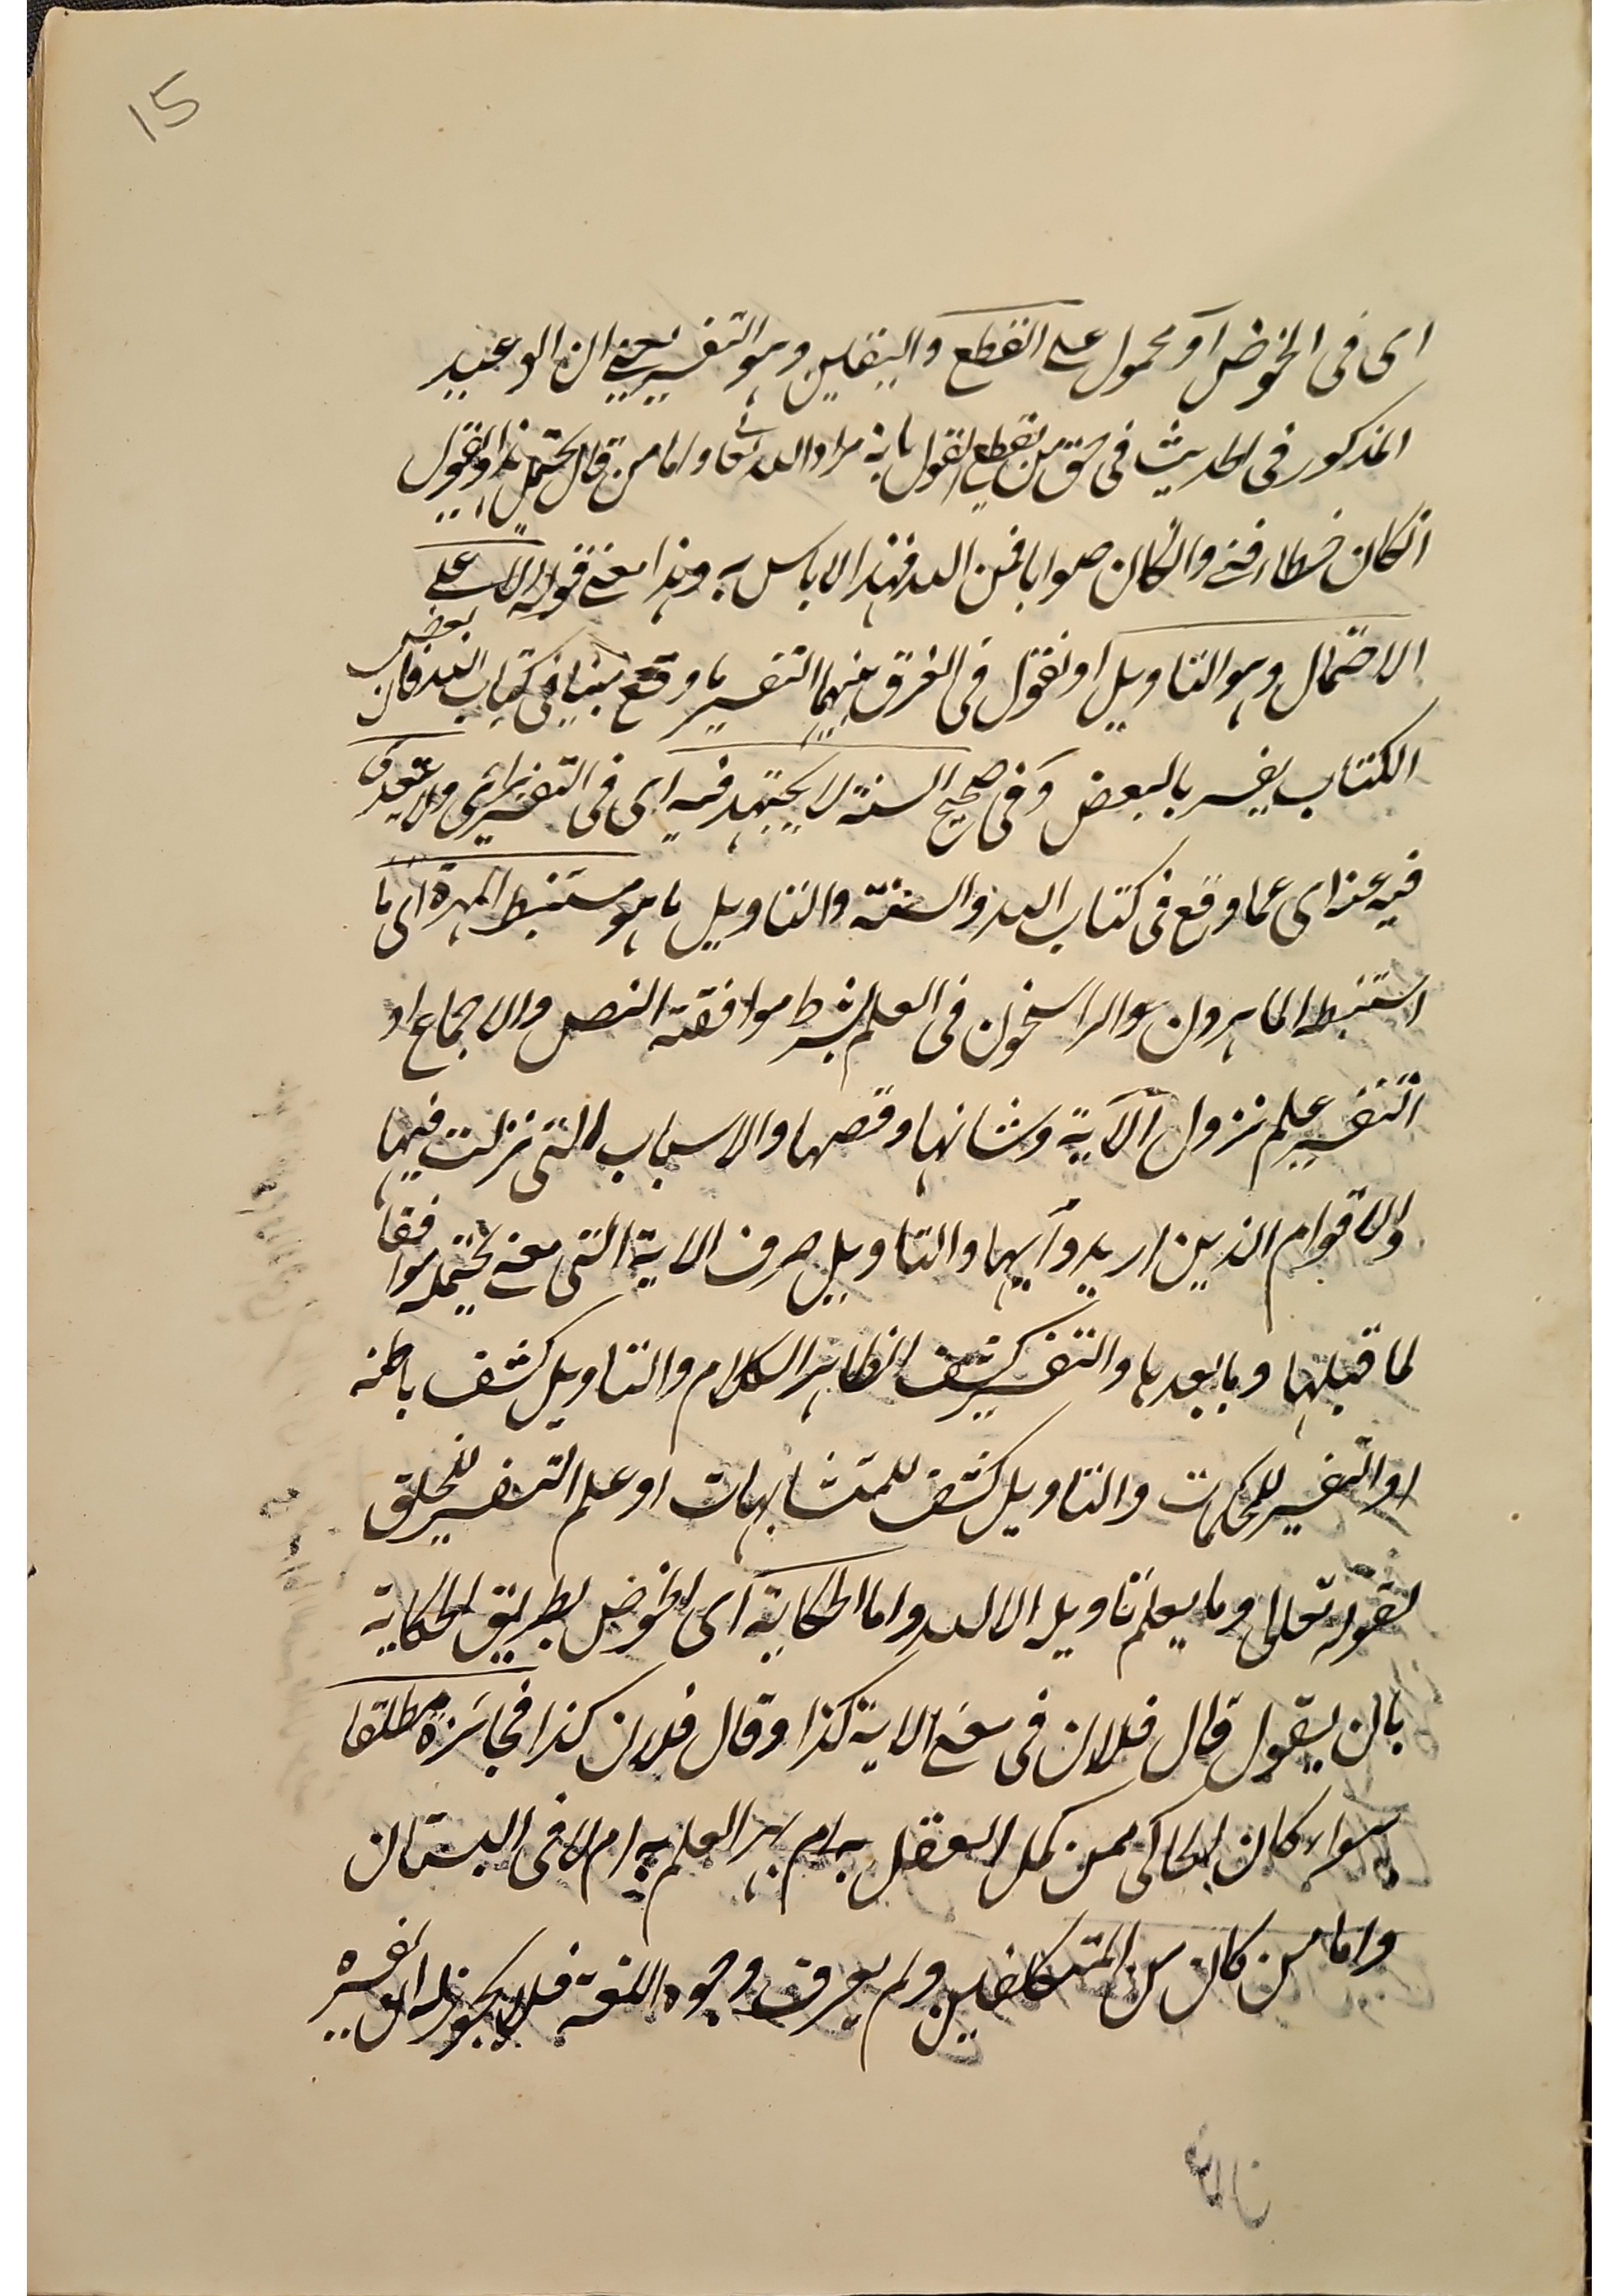 15
اى فى الخوض او محمول على القطع واليقين وهو التفسير يعنى ان الوعيد
المذكور فى الحديث فى حق من يقطع القول بانه مراد الله تعا واما من قال يحتمل هذا ونقول
انكان خطاء فمنى وانكان صوابا فمن الله فهذا لا باس به وهذا معنى قوله لا على
الاحتمال وهو التاويل او نقول فى الفرق بينهما التفسير ما وقع مبينا فى كتاب الله فان بعض
الكتاب يفسر بالبعض و فى صحيح السنة لا يجتهد فيه اى فى التفسير براى ولا يتعدى
فيه عنه اى عما وقع فى كتاب الله والسنة والتاويل ما هو مستنبط المهرة اى ما
استنبط الماهرون والراسخون فى العلم بشرط موافقة النص والاجماع او
التفسير علم نزول الآية وشانها وقصها والاسباب التى نزلت فيها
والاقوام الذين اريدوا بها والتاويل صرف الاية التى معنى يحتمله موافقا
لما قبلها وما بعدها والتفسير كشف الظاهر الكلام والتاويل كشف باطنه
او التفسير للمحكمات والتاويل كشف للمتشابهات او علم التفسير للخلق
لقوله تعالى وما يعلم تاويله الا الله واما الحكاية اى الخوض بطريق الحكاية
بان يقول قال فلان فى معنى الاية كذا وقال فلان كذا فجائزة مطلقا
سواء كان الحاكى ممن كمل العقل به ام بهر العلم به ام لا فى البستان
واما من كان من المتكلفين ولم يعرف وجوه اللغة فلا يجوز له ان يفسره